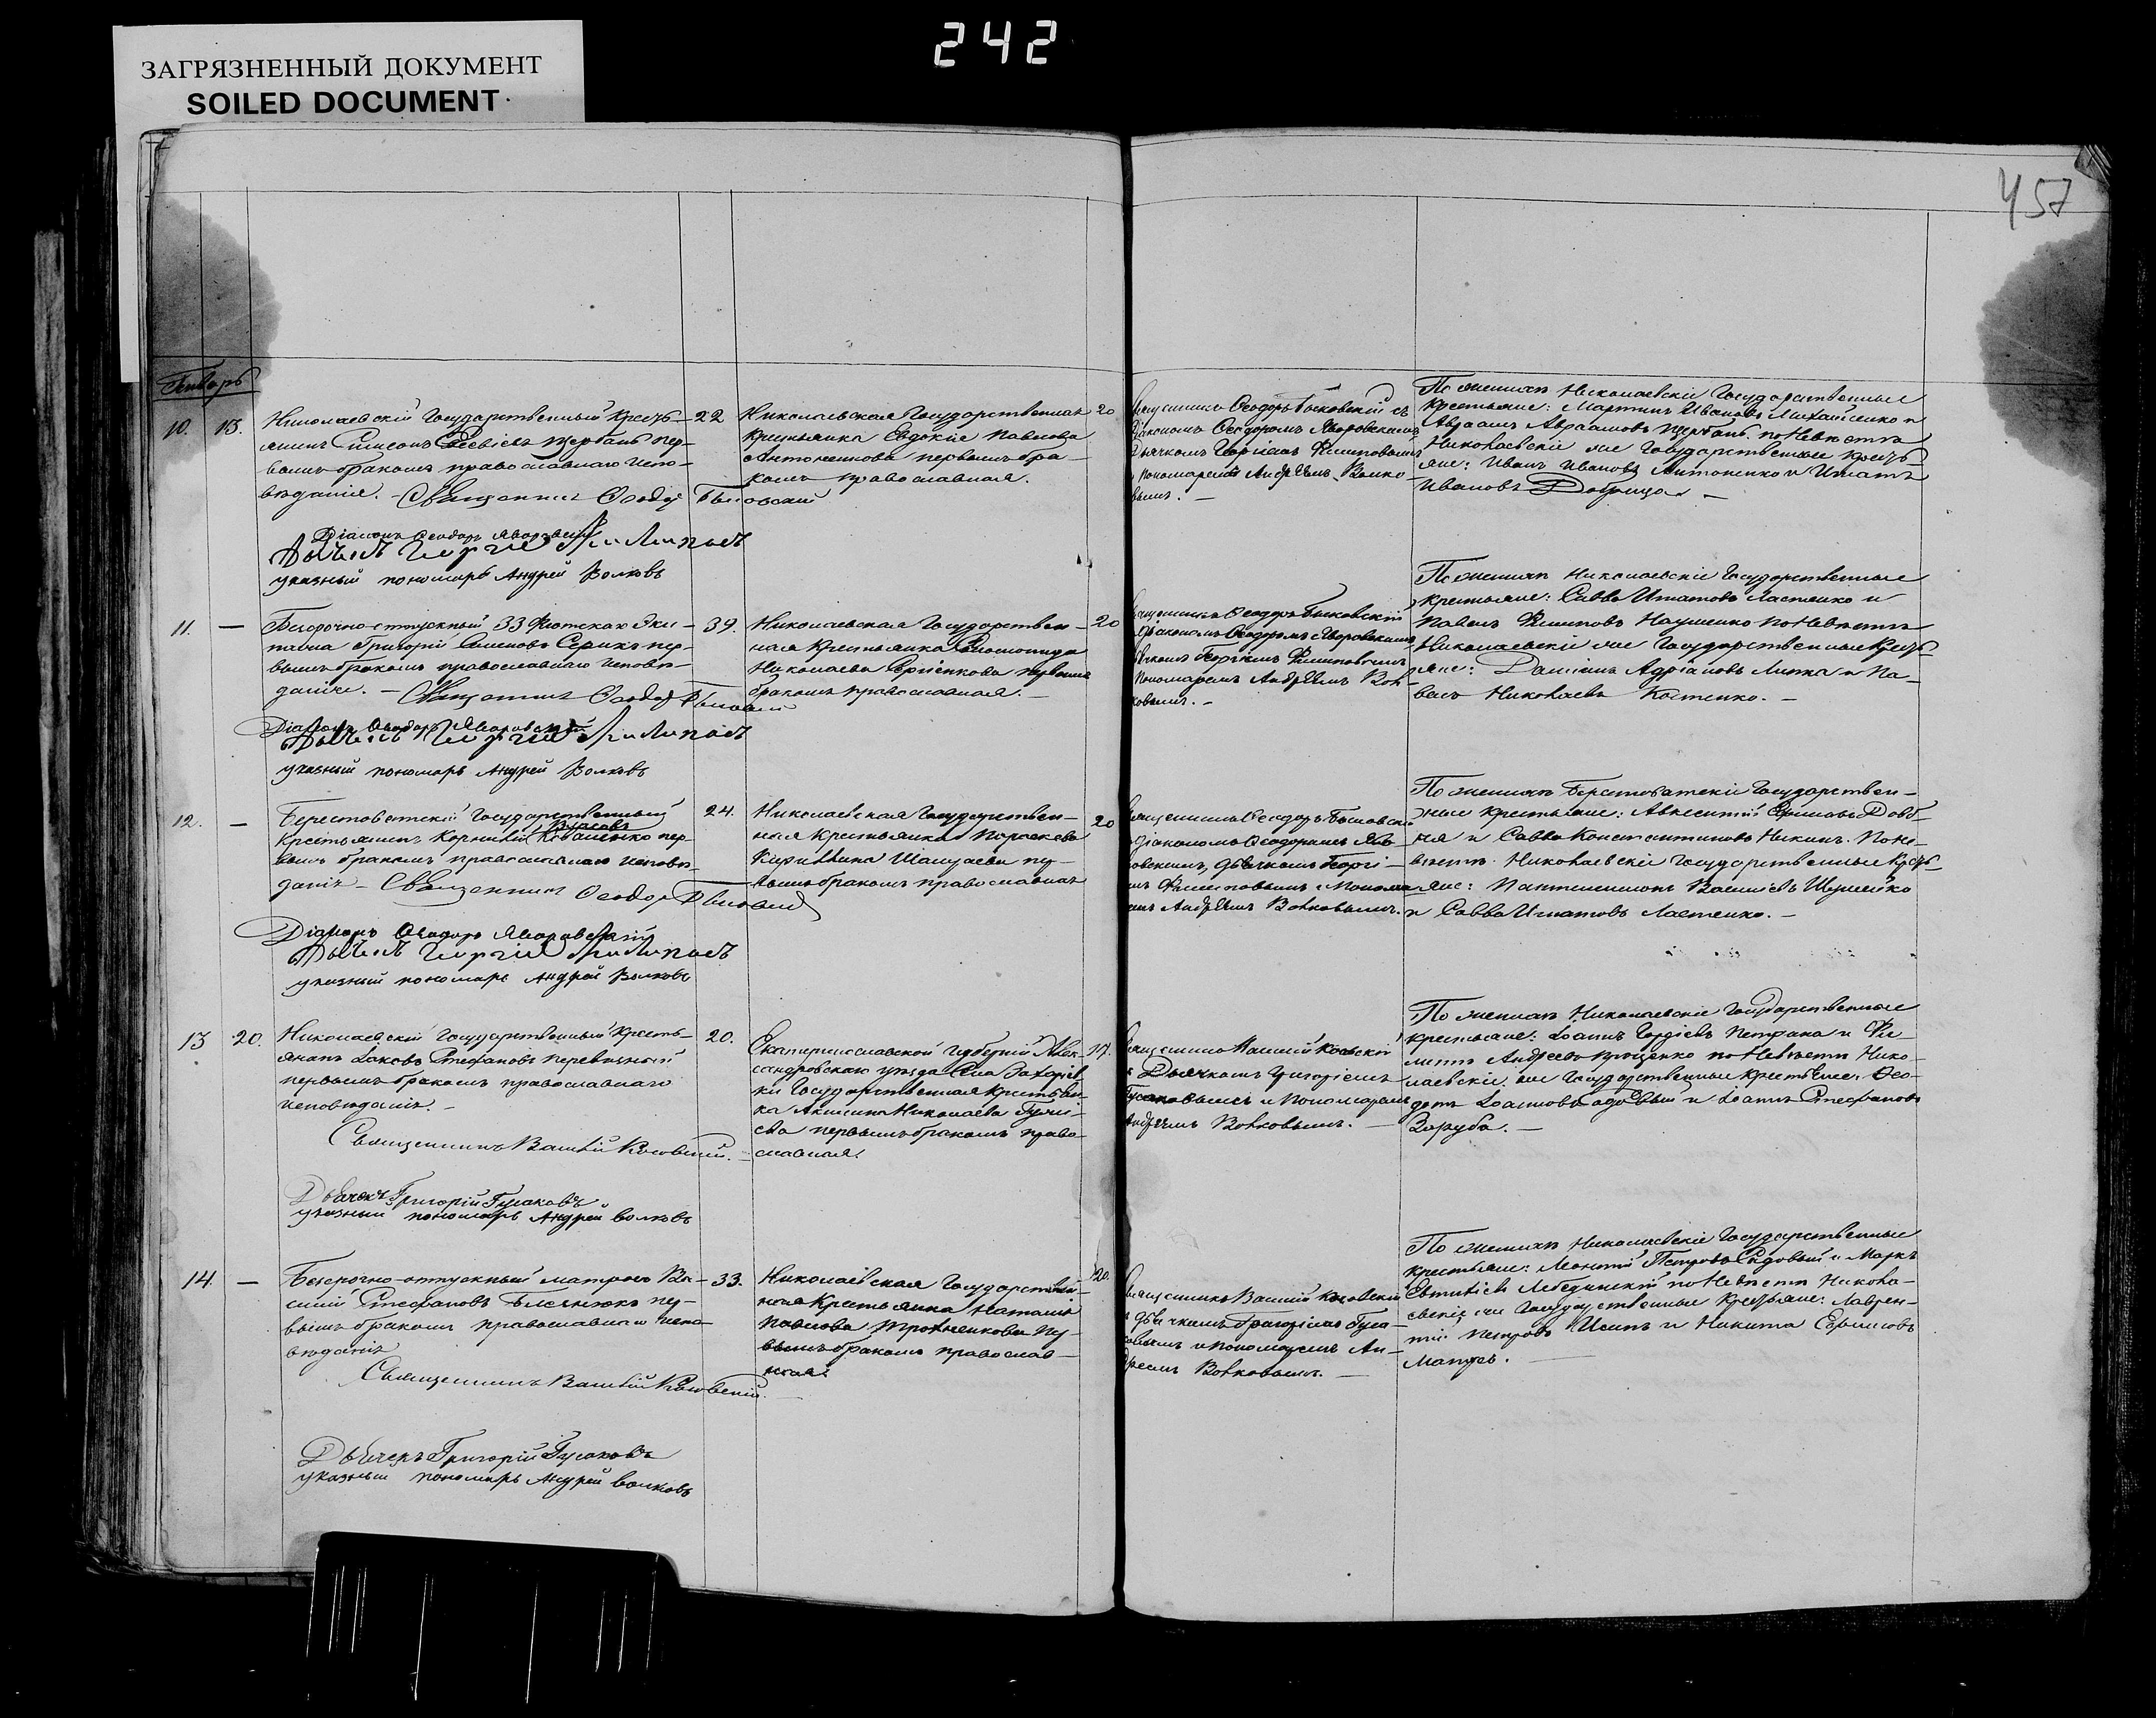 242
ЗАГРЯЗНЕННЫЙ ДОКУМЕНТ
SOILED DOCUMENT
457
Январь
10. 13. Николаевскій Государственный Кресть- 22
янинъ Щербань пер-
вымъ бракомъ православнаго испо-
веданія. - Священникъ Ѳеодоръ Быковскій
Діаконъ Ѳеодоръ Яворовскій
Дьячекъ Георгій Филиповъ
указный пономарь Андрей Волковъ
Николаевская Государственная 20
крестьянка Евдокія Павлова
Антоненкова первымъ бра-
комъ православная.
Священникъ Ѳеодоръ Быковскій съ
Діакономъ Ѳеодоромъ Яворовскимъ
Дьячкомъ Георгіемъ Филиповымъ
Пономаремъ Андреемъ Волко-
вымъ. -
По женихѣ Николаевскіе Государственные
Крестьяне: Мартинъ Ивановъ Михайленко и
Авраамъ Авраамовъ Щербань. по Невѣстѣ
Николаевскіе же Государственные Кресть-
яне: Иванъ Ивановъ Антоненко и Игнатъ
Ивановъ Добрица -
11. - Безсрочно-отпускный 33 Флотскаго Эки- 39.
пажа Григорій Семеновъ Серикъ пер-
вымъ бракомъ православнаго исповѣ-
данія. - Священникъ Ѳеодоръ Быковскій
Діаконъ Ѳеодоръ Яворовскій
Дьячекъ Георгій Филиповъ
указный пономарь Андрей Волковъ
Николаевская Государствен- 20
ная Крестьянка
Николаева Сергіенкова первымъ
бракомъ православная. -
Священникъ Ѳеодоръ Быковскій
Діакономъ Ѳеодоромъ Яворовскимъ
Дьячкомъ Георгіемъ Филиповымъ
Пономаремъ Андреемъ Вол-
ковымъ. -
По женихѣ Николаевскіе Государственные
крестьяне: Савва Игнатовъ Ластенко и
Павелъ Филиповъ Науменко по Невѣстѣ
Николаевскіе же Государственные Кресть-
яне: Даміанъ Адріановъ и Па-
велъ Николаевъ Костенко. -
12. - Берестоватскій Государственный 24.
Крестьянинъ Корнилій Власовъ Коваленко пер-
вымъ бракомъ православнаго исповѣ-
данія - Священникъ Ѳеодоръ Быковскій
Діаконъ Ѳеодоръ Яворовскій
Дьячекъ Георгій Филиповъ
указный пономарь Андрей Волковъ
Николаевская Государствен- 20
ная Крестьянка Параскева
Кирилина пер-
вымъ бракомъ православная
Священникъ Ѳеодоръ Быковскій
Діакономъ Ѳеодоромъ Яво-
ровскимъ, дьячкомъ Георгі-
емъ Филиповымъ и Понома-
ремъ Андреемъ Волковымъ.
По женихѣ Берестоватскіе Государствен-
ные крестьяне: Авксентій Довб-
ня и Савва Константиновъ Никинъ. По Не-
вѣстѣ. Николаевскіе Государственные Кресть-
яне: Пантелеимонъ Василіевъ Шерейко
и Савва Игнатовъ Ластенко. -
13 20. Николаевскій Государственный Кресть- 20.
янинъ Іаковъ Стефановъ Перевязной
первымъ бракомъ православнаго
исповеданія. -
Священникъ Василій Косовскій. -
Дьячекъ Григорій Гусаковъ
указный пономарь Андрей Волковъ
Екатеринославской Губерніи Алек- 17.
сандровскаго уѣзда Села
ки Государственная Крестьян-
ка Акилина Николаева
первымъ бракомъ право-
славная.
Священникъ Василій Косовскій
съ Дьячкомъ Григоріемъ
Гусаковымъ и Пономаремъ
Андреемъ Волковымъ. -
По женихѣ Николаевскіе Государственные
крестьяне: Іоаннъ Гордіевъ Петрака и Фи-
липъ Андреевъ Ющенко по Невѣстѣ Нико-
лаевскіе же Государственные Крестьяне: Ѳео-
дотъ Іоанновъ Садовый и Іоаннъ Стефановъ
Заруба. -
14. - Безсрочно-отпускный матрозъ Ва- 33.
силій Стефановъ пер-
вымъ бракомъ православнаго испо-
веданія
Священникъ Василій Косовскій.
Дьячекъ Григорій Гусаковъ
указный пономарь Андрей Волковъ
Николаевская Государствен- 20.
ная Крестьянка Наталія
Павлова пер-
вымъ бракомъ православ-
ная.
Священникъ Василій Косовскій
съ дьячкомъ Григоріемъ Гуса-
ковымъ и пономаремъ Ан-
дреемъ Волковымъ. -
По женихѣ Николаевскіе Государственные
крестьяне: Леонтій Петровъ Садовый и Маркъ
Евтихіевъ Лебединскій по Невѣстѣ Никола-
евскіе же Государственные Крестьяне: Лаврен-
тій Петровъ и Никита Ефимовъ